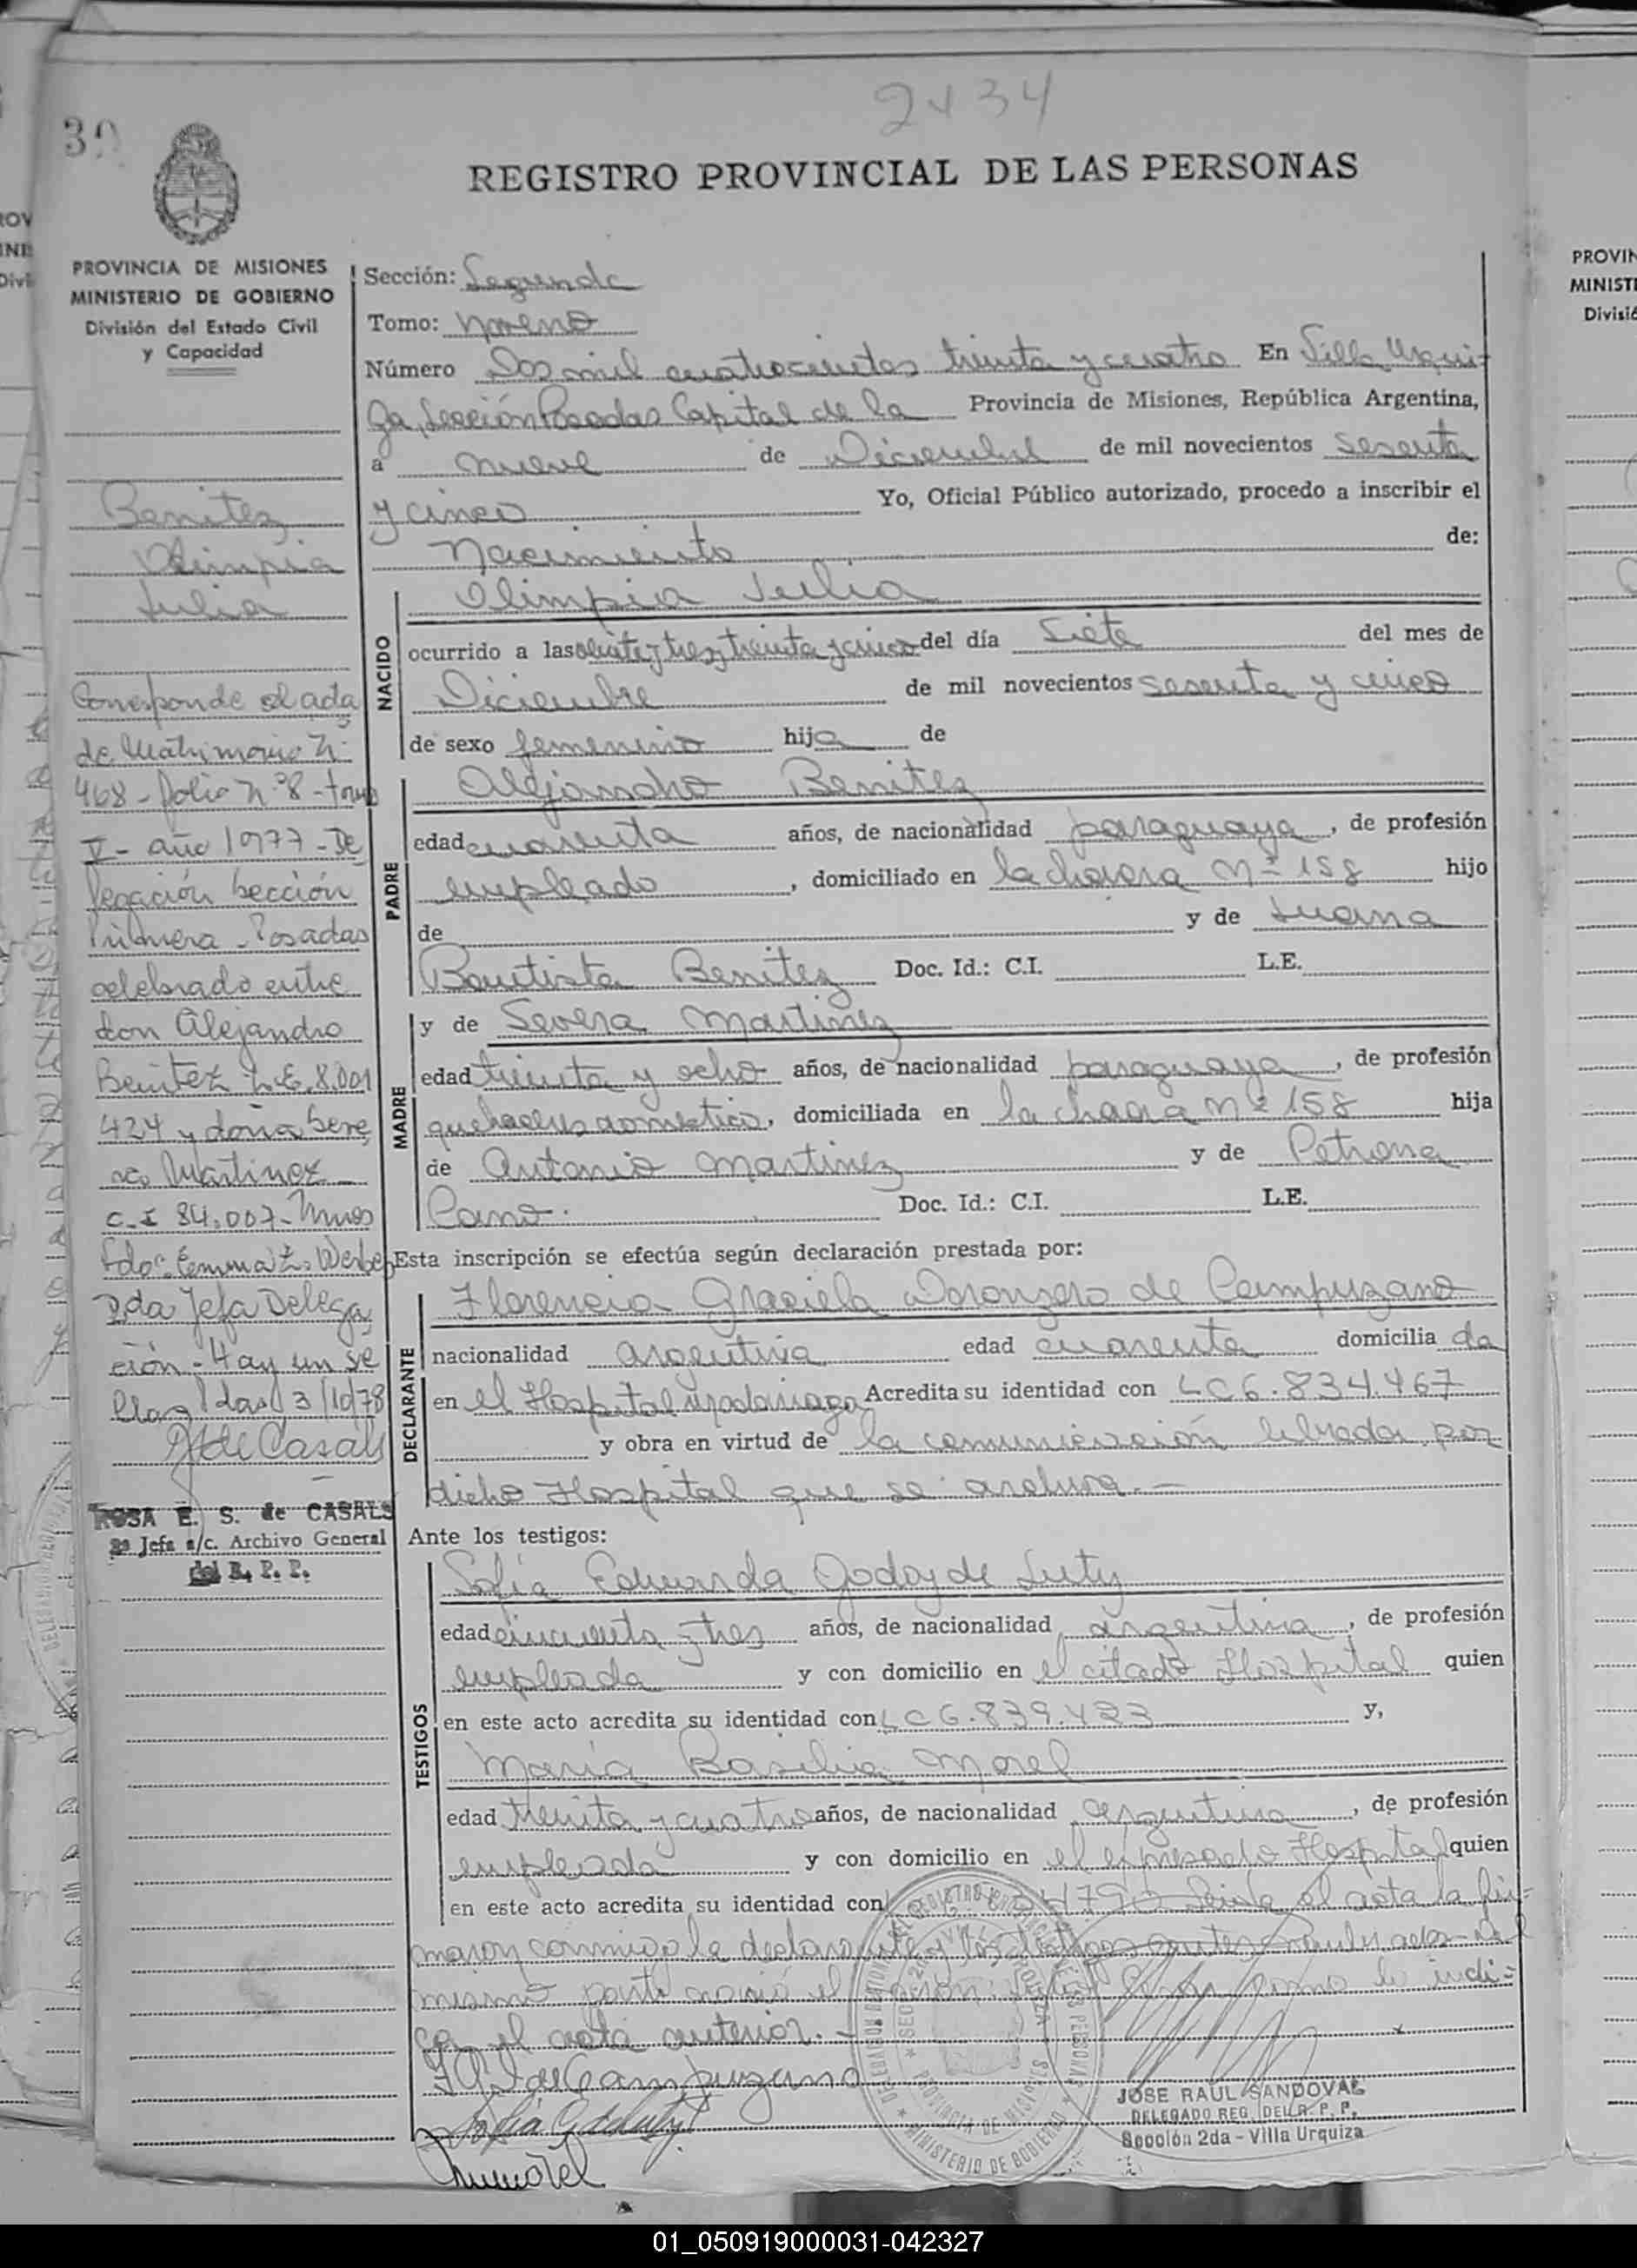 2434
30
REGISTRO PROVINCIAL DE LAS PERSONAS
PROVINCIA DE MISIONES
MINISTERIO DE GOBIERNO
División del Estado Civil
y Capacidad
Benitez
Olimpia
Julia
Corresponde al acta
de Matrimonio N:
468 - folio N:º 8 - tomo
V - año 1977 - De
legación Sección
Primera - Posadas
celebrado entre
don Alejandro
Benitez L.E. 8.001
424 y doña Seve
ra Martinez
C.I 84.007 - Mnes
Fdo:
2da Jefa Delega
ción - Hay un se
llo 3/10/78
de Casals
ROSA E. S. de CASALS
2ª Jefa a/c. Archivo General
del R. P. P.
Sección: Segunda
Tomo: noveno
Número Dos mil cuatrocientos treinta y cuatro En Villa Urqui-
za, Sección Posadas Capital de la Provincia de Misiones, República Argentina,
a nueve de Diciembre de mil novecientos sesenta
y cinco Yo, Oficial Público autorizado, procedo a inscribir el
Nacimiento de:
NACIDO
Olimpia Julia
ocurrido a las veinte y tres y treinta y cinco del día Siete del mes de
Diciembre de mil novecientos sesenta y cinco
de sexo femenino hija de
PADRE
Alejandro Benitez
edad cuarenta años, de nacionalidad paraguaya, de profesión
empleado, domiciliado en la chacra Nº 158 hijo
de y de Juana
Bautista Benitez Doc. Id.: C.I. L.E.
MADRE
y de Severa Martinez
edad treinta y ocho años, de nacionalidad paraguaya, de profesión
quehaceres domestico, domiciliada en la chacra Nº 158 hija
de Antonio Martinez y de Petrona
Cano. Doc. Id.: C.I. L.E.
Esta inscripción se efectúa según declaración prestada por:
DECLARANTE
Florencia Graciela de Campuzano
nacionalidad argentina edad cuarenta domicilia da
en el Hospital Madariaga Acredita su identidad con LC 6.834.467
y obra en virtud de la comunicación librada por
dicho Hospital que se archiva. -
Ante los testigos:
TESTIGOS
Sofía Eduarda Godoy de
edad cincuenta y tres años, de nacionalidad argentina, de profesión
empleada y con domicilio en el citado Hospital quien
en este acto acredita su identidad con LC 6.839.423 y,
María Basilia Morel
edad treinta y cuatro años, de nacionalidad argentina, de profesión
empleada y con domicilio en el expresado Hospital quien
en este acto acredita su identidad con Leida el acta la fir-
maron conmigo la declarante y los testigos
mismo parto nació el como lo indi-
ca el acta anterior. -
de Campuzano
Sofia G de
Morel
JOSE RAUL SANDOVAL
DELEGADO REG. DEL R. P. P.
Sección 2da - Villa Urquiza
PROVINCIA DE MISIONES
MINISTERIO DE GOBIERNO
01_050919000031-042327